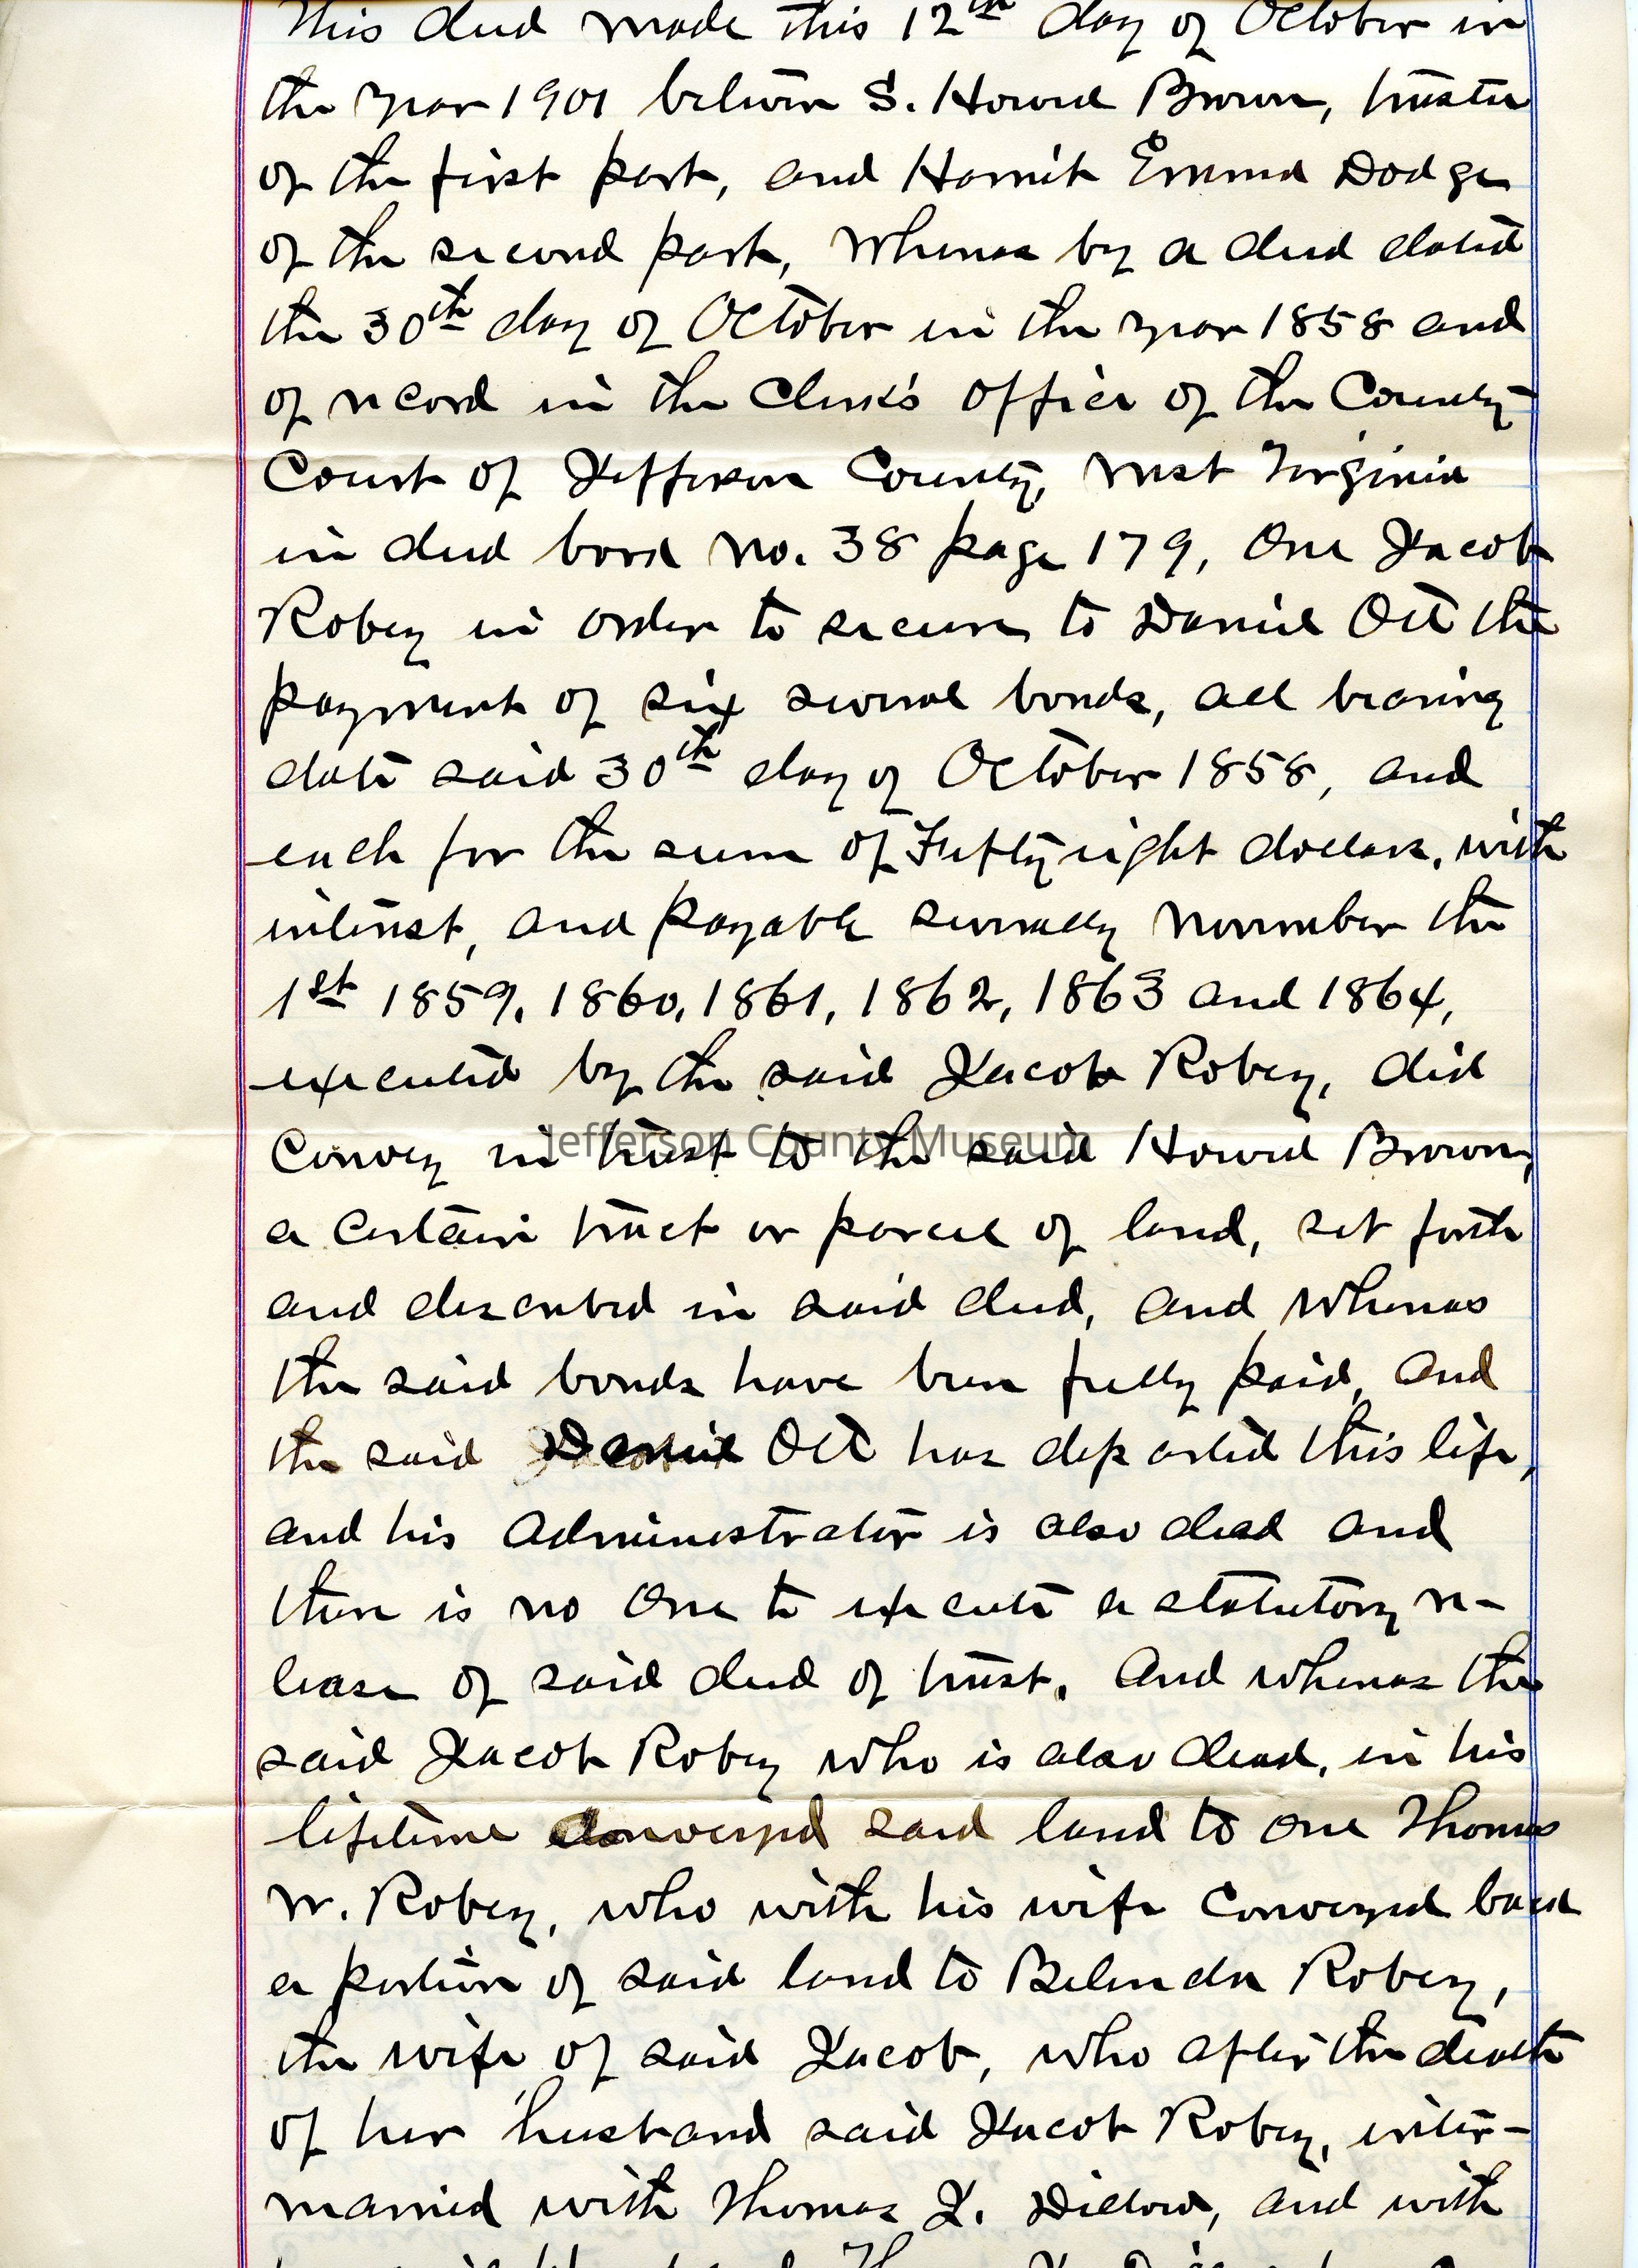 This deed made this 12th day of October in
the year 1901 between S. Howell Brown, trustee
of the first part, and Harriet Emma Dodge
of the second part, Whereas by a deed dated
the 30th day of October in the year 1858 and
of record in the Clerk's office of the County
Court of Jefferson County, West Virginia
in deed book No. 38 page 179, One Jacob
Robey in order to secure to Daniel Ott the
payment of six several bonds, all bearing
date said 30th day of October 1858, and
each for the sum of Fifty eight dollars, with
interest, and payable severally November the
1st 1859, 1860, 1861, 1862, 1863 and 1864,
executed by the said Jacob Robey, did
Convey in trust to the said Howell Brown,
Jefferson County Museum
a certain tract or parcel of land, set forth
and described in said deed, and whereas
the said bonds have been fully paid, and
the said Daniel Ott has departed this life,
and his Administrator is also dead and
there is no one to execute a statutory re-
lease of said deed of trust. And whereas the
said Jacob Robey who is also dead, in his
lifetime conveyed said land to one Thomas
W. Robey, who with his wife Conveyed back
a portion of said land to Belinda Robey,
the wife of said Jacob, who after the death
of her husband said Jacob Robey, inter-
married with Thomas J. Dillow, and with